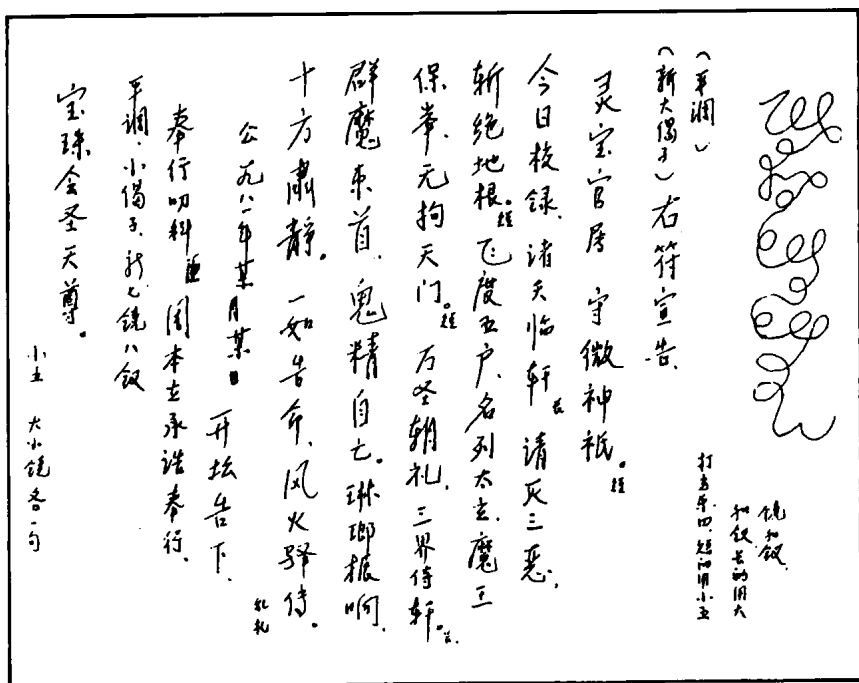 铙和钹
和钹长的用大
打击乐四、短的用小五
(平调)
(新大偈子)右符宣告、
灵宝官属 守微神祇。短
今日校録、诸天临轩长 请灭三恶、
斩绝地根。短 飞度五户、名列太玄、魔王
保举、无拘天门。短 万圣朝礼、三界侍轩。长
群魔束首、鬼精自亡。琳瑯振响、
十方肃静。一如告命、风火驿传。
公元八一年某月某日 开坛告下、
礼礼
奉行叨科 阅本左承诰奉行、
平调、小偈子、新七铙八钹
宝珠会圣天尊。
小五 大小铙各一句